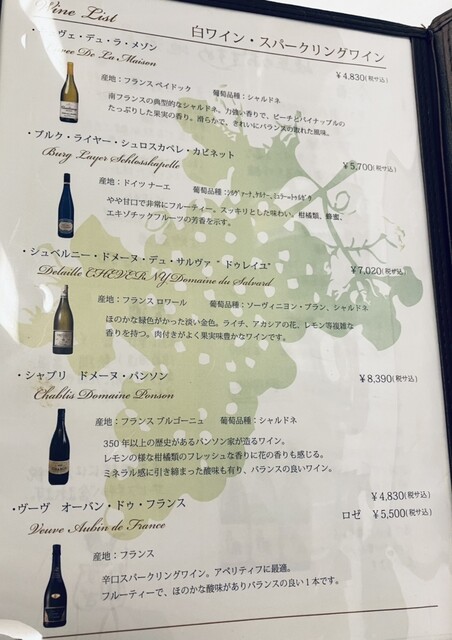 Wine List
白ワイン・スパークリングワイン
ヴェ・デュ・ラ・メゾン ￥4,830(税サ込)
De La Maison
産地：フランス ペイドック 葡萄品種：シャルドネ
南フランスの典型的なシャルドネ。力強い香りで、ピーチとパイナップルの
たっぷりした果実の香り。滑らかで、きれいにバランスの取れた風味。
・ブルク・ライヤー・シュロスカペレ・カビネット ￥5,700(税サ込)
Burg Layer Schlosskapelle
産地：ドイツ ナーエ 葡萄品種：ｼﾙｳﾞｧｰﾅ、ｹﾙﾅｰ、ﾐｭﾗｰﾄｩﾙｶﾞｳ
やや甘口で非常にフルーティー。スッキリとした味わい。柑橘類、蜂蜜、
エキゾチックフルーツの芳香を示す。
・シュベルニー・ドメーヌ・デュ・サルヴァ "ドゥレイユ" ￥7,020(税サ込)
Delaille CHEVERNY Domaine du Salvard
産地：フランス ロワール 葡萄品種：ソーヴィニヨン・ブラン、シャルドネ
ほのかな緑色がかった淡い金色。ライチ、アカシアの花、レモン等複雑な
香りを持つ。肉付きがよく果実味豊かなワインです。
・シャブリ ドメーヌ・パンソン ￥8,390(税サ込)
Chablis Domaine Ponson
産地：フランス ブルゴーニュ 葡萄品種：シャルドネ
350年以上の歴史があるパンソン家が造るワイン。
レモンの様な柑橘類のフレッシュな香りに花の香りも感じる。
ミネラル感に引き締まった酸味も有り、バランスの良いワイン。
・ヴーヴ オーバン・ドゥ・フランス ￥4,830(税サ込)
Veuve Aubin de France ロゼ ￥5,500(税サ込)
産地：フランス
辛口スパークリングワイン。アペリティフに最適。
フルーティーで、ほのかな酸味がありバランスの良い1本です。